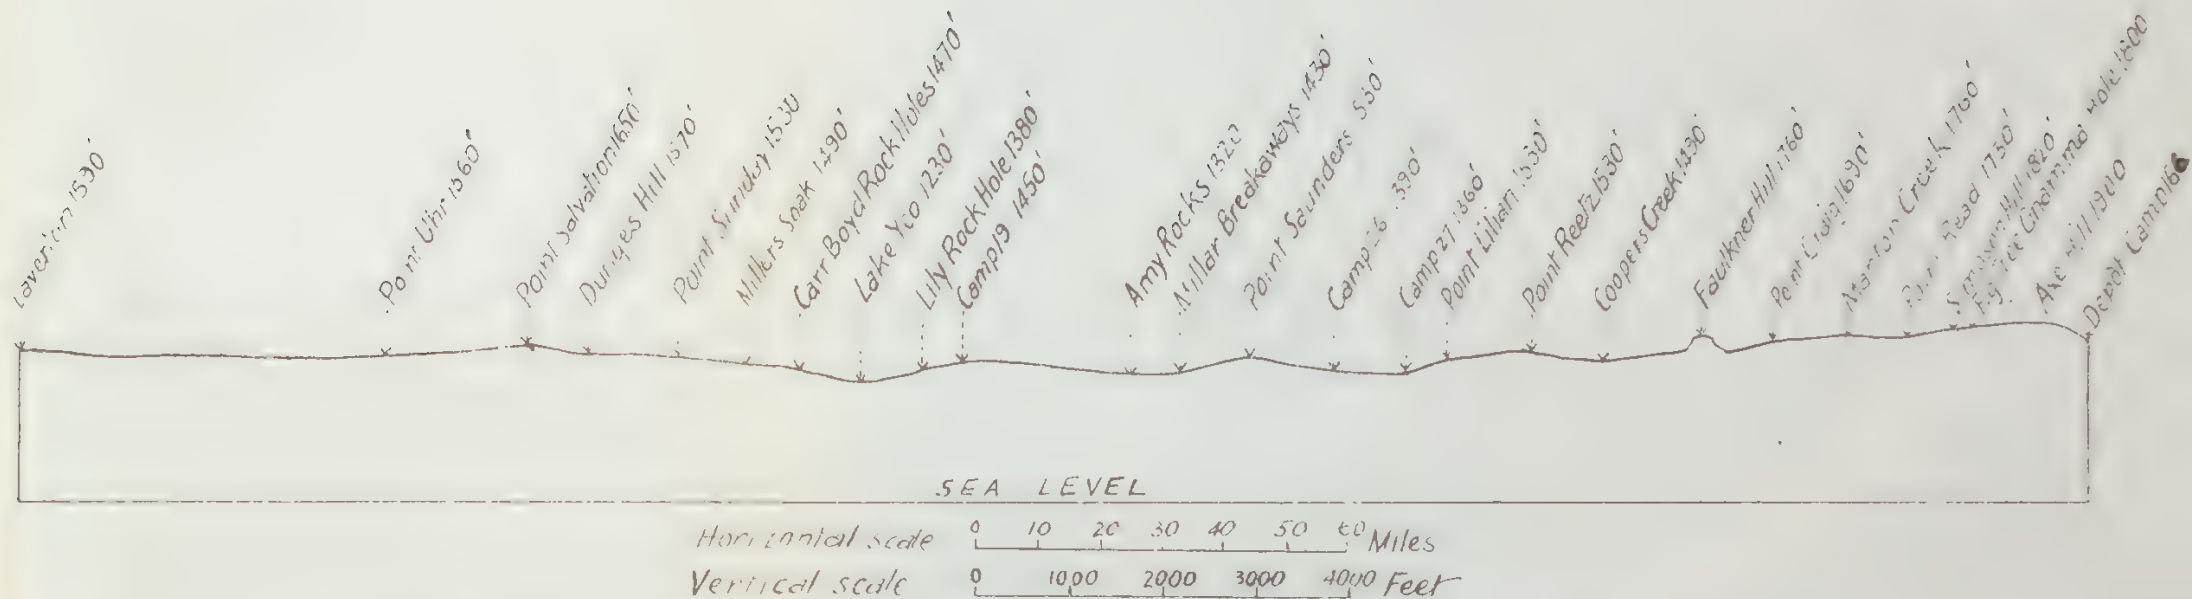 Laverton 1590'
Point Uhr 1560'
Point Salvation 1650'
Duruges Hill 1570'
Point Sunday 1530
Millers Soak 1490'
Carr Boyd Rock Holes 1470'
Lake Yeo 1230'
Lily Rock Hole 1380'
Camp 19 1450'
Amy Rocks 1320
Millar Breakaways 1430'
Point Saunders 530'
Camp 26 390'
Camp 27 1360'
Point Lilian 1530'
Point Reetz 1530'
Coopers Creek 1430'
Faulkner Hill 1760'
Point 1690'
Creek 1760'
Read 1750'
Hill 1820'
Gnamma Hole 1800'
Axe Hill 1900
Depôt Camp 166
SEA LEVEL
Horizontal scale 0 10 20 30 40 50 60 Miles
Vertical scale 0 1000 2000 3000 4000 Feet